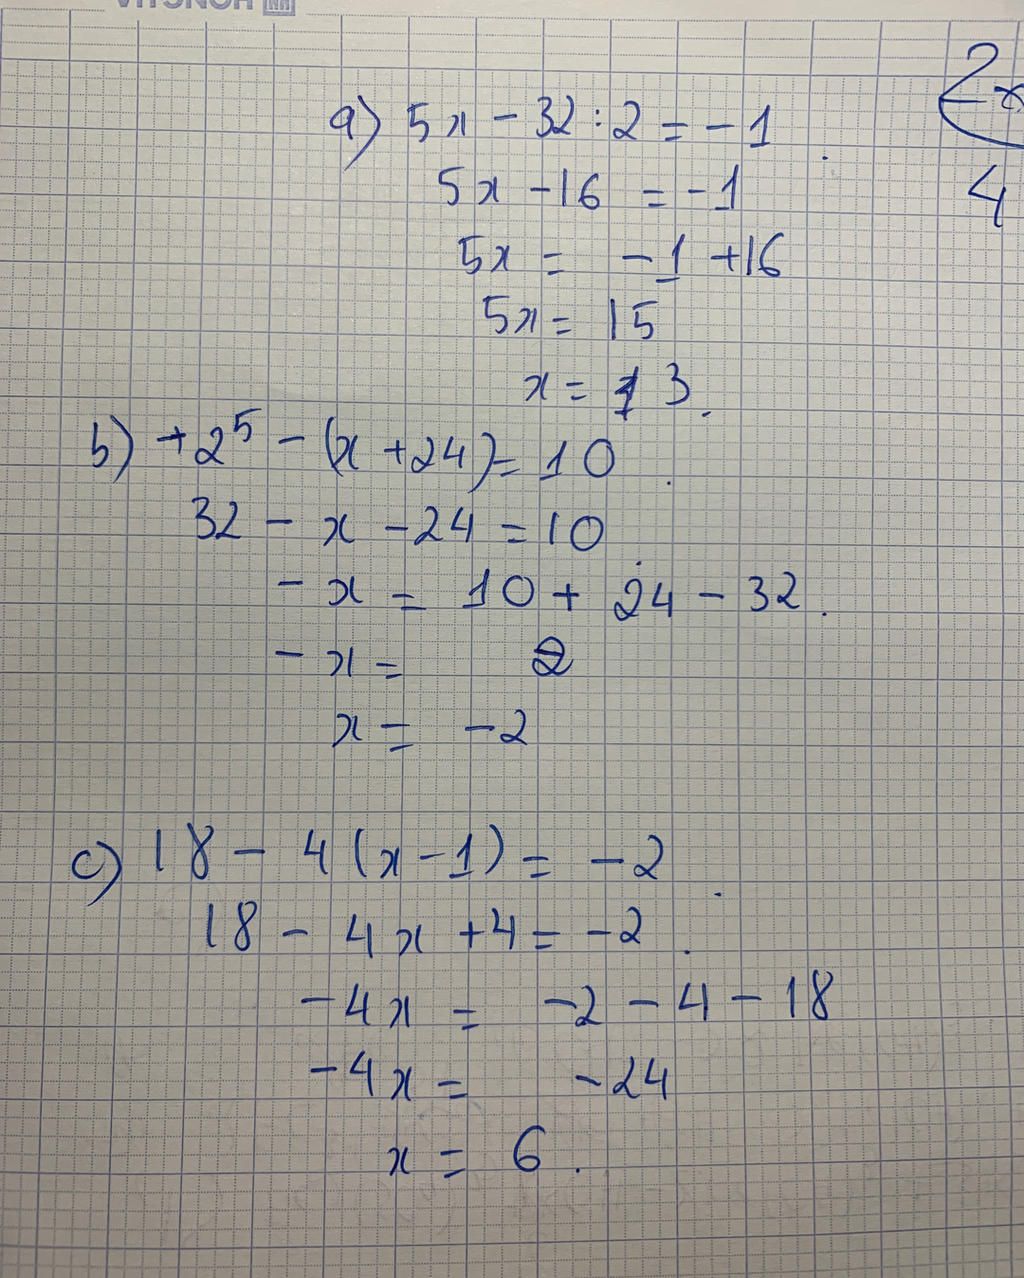 a) 5x - 32 : 2 = -1
5x - 16 = -1
5x = -1 + 16
5x = 15
x = 3.
b) +2⁵ - (x + 24) = 10
32 - x - 24 = 10
-x = 10 + 24 - 32.
-x = 2
x = -2
c) 18 - 4(x - 1) = -2
18 - 4x + 4 = -2.
-4x = -2 - 4 - 18
-4x = -24
x = 6.
2x
4